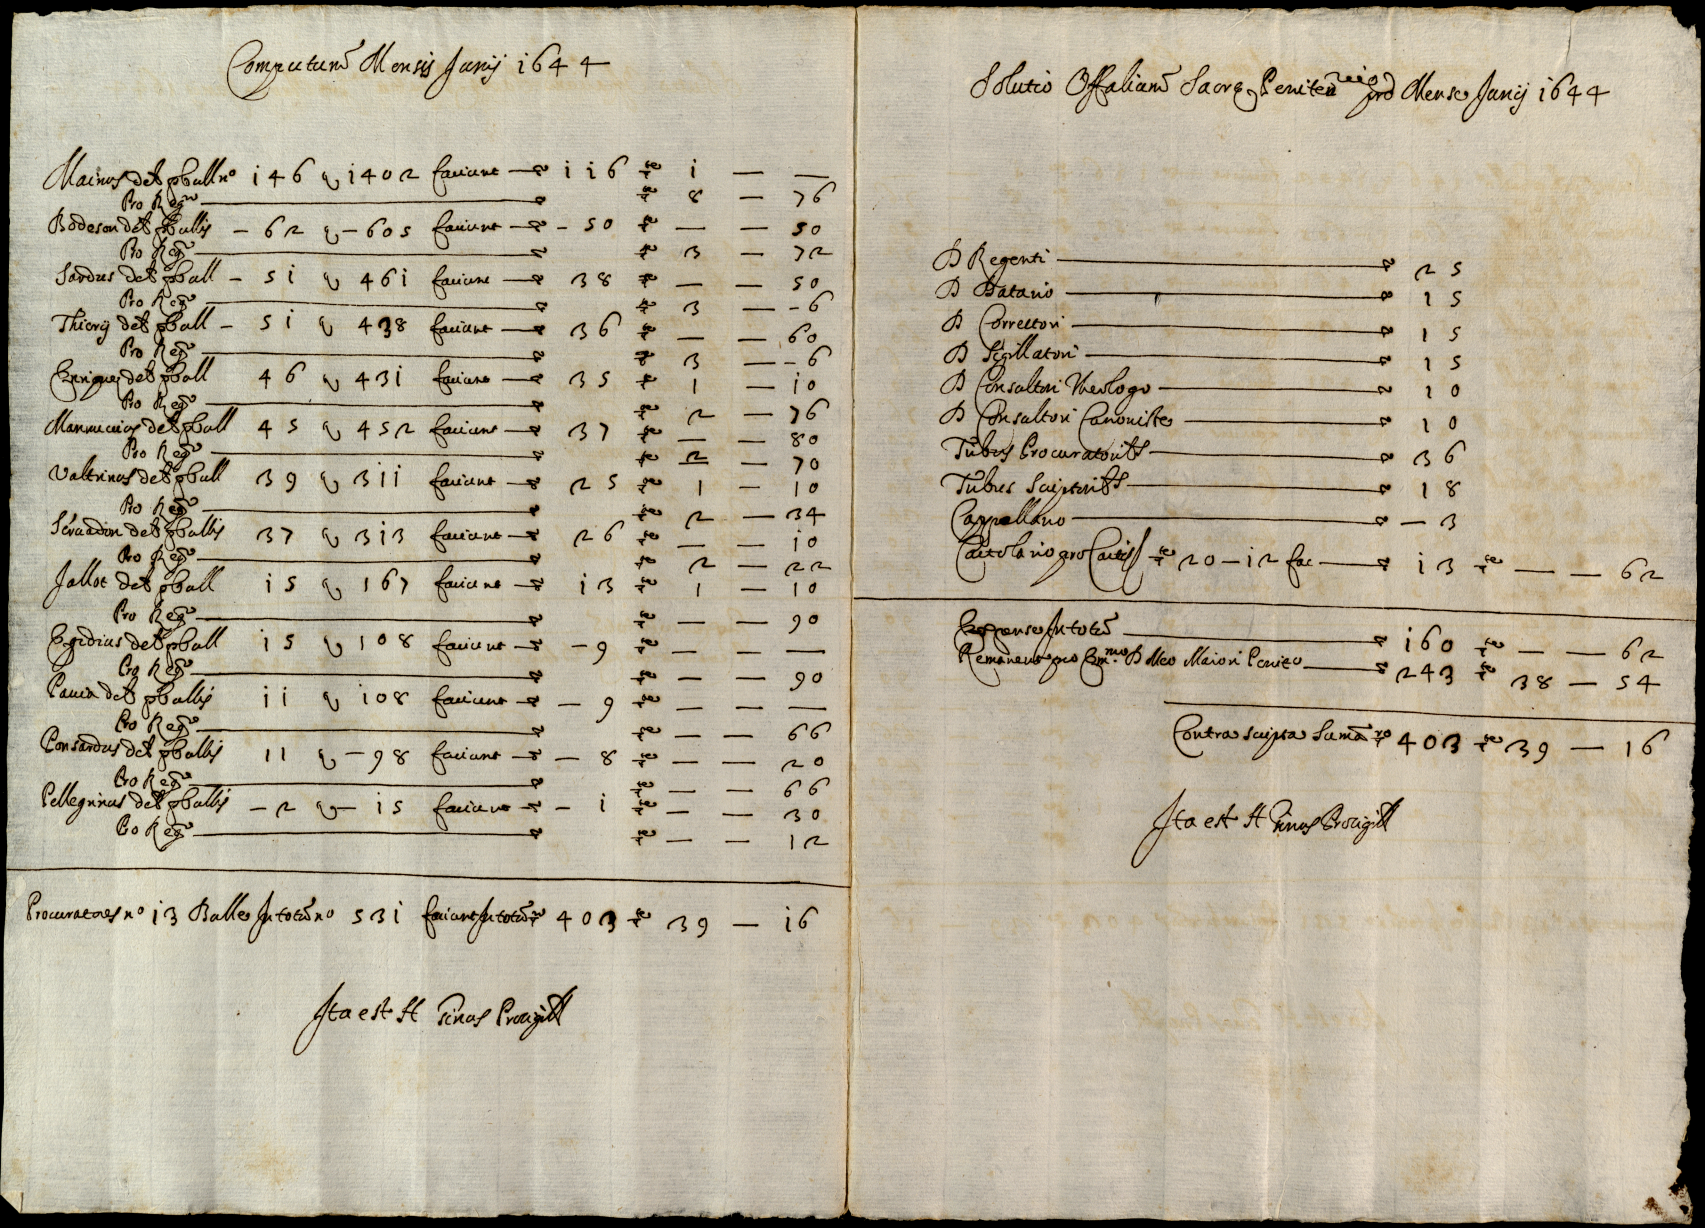 Computum Mensis Junij 1644
Mainus det p bull no 146 q 1402 faciunt — 116 1 — —
Pro Reg — 8 — 76
Bodeson det p bullis — 62 q — 605 faciunt — 50 — 50
Pro Reg — 3 — 72
Sardus det p bull — 51 q 461 faciunt — 38 — — 50
Pro Reg — 3 — - 6
Thierij det p bull — 51 q 438 faciunt — 36 — — 60
Pro Reg — 3 — - 6
Enriques det p bull 46 q 431 faciunt — 35 1 — 10
Pro Reg — 2 — 76
det p bull 45 q 452 faciunt — 37 — — 80
Pro Reg — 2 — 70
Valtrinus det p bull 39 q 311 faciunt — 25 1 — 10
Pro Reg — 2 — 34
det p bullis 37 q 313 faciunt — 26 — — 10
Pro Reg — 2 — 22
Jallot det p bull 15 q 167 faciunt — 13 1 — 10
Pro Reg — — — 90
Egidius det p bull 15 q 108 faciunt — 9 — — —
Pro Reg — — — 90
Pavia det p bullis 11 q 108 faciunt — 9 — — —
Pro Reg — — — 66
Ponsardus det p bullis 11 q — 98 faciunt — 8 — — 20
Pro Reg — — — 66
Pellegrinus det p bullis — 2 q — 15 faciunt — 1 — — 30
Pro Reg — — — 12
Procuratores no 13 Bulle In totum no 531 faciunt In totum 403 39 — 16
Ita est H
Solutio Offialium Sacre Peniten pro Mense Junij 1644
D Regenti — 25
D Datario — 15
D Correctori — 15
D Sigillatori — 15
D Consultori Theologo — 10
D Consultori Canoniste — 10
Tribus Procuratoribs — 36
Tribus Scriptoribs — 18
Cappellano — 3
Cartolario pro Cartis 20 — 12 fac — 13 — — 62
Expense In totum — 160 — — 62
Remanent pro Emmo D Meo Maiori Penito — 243 38 — 54
Contra scripta Suma 403 39 — 16
Ita est H